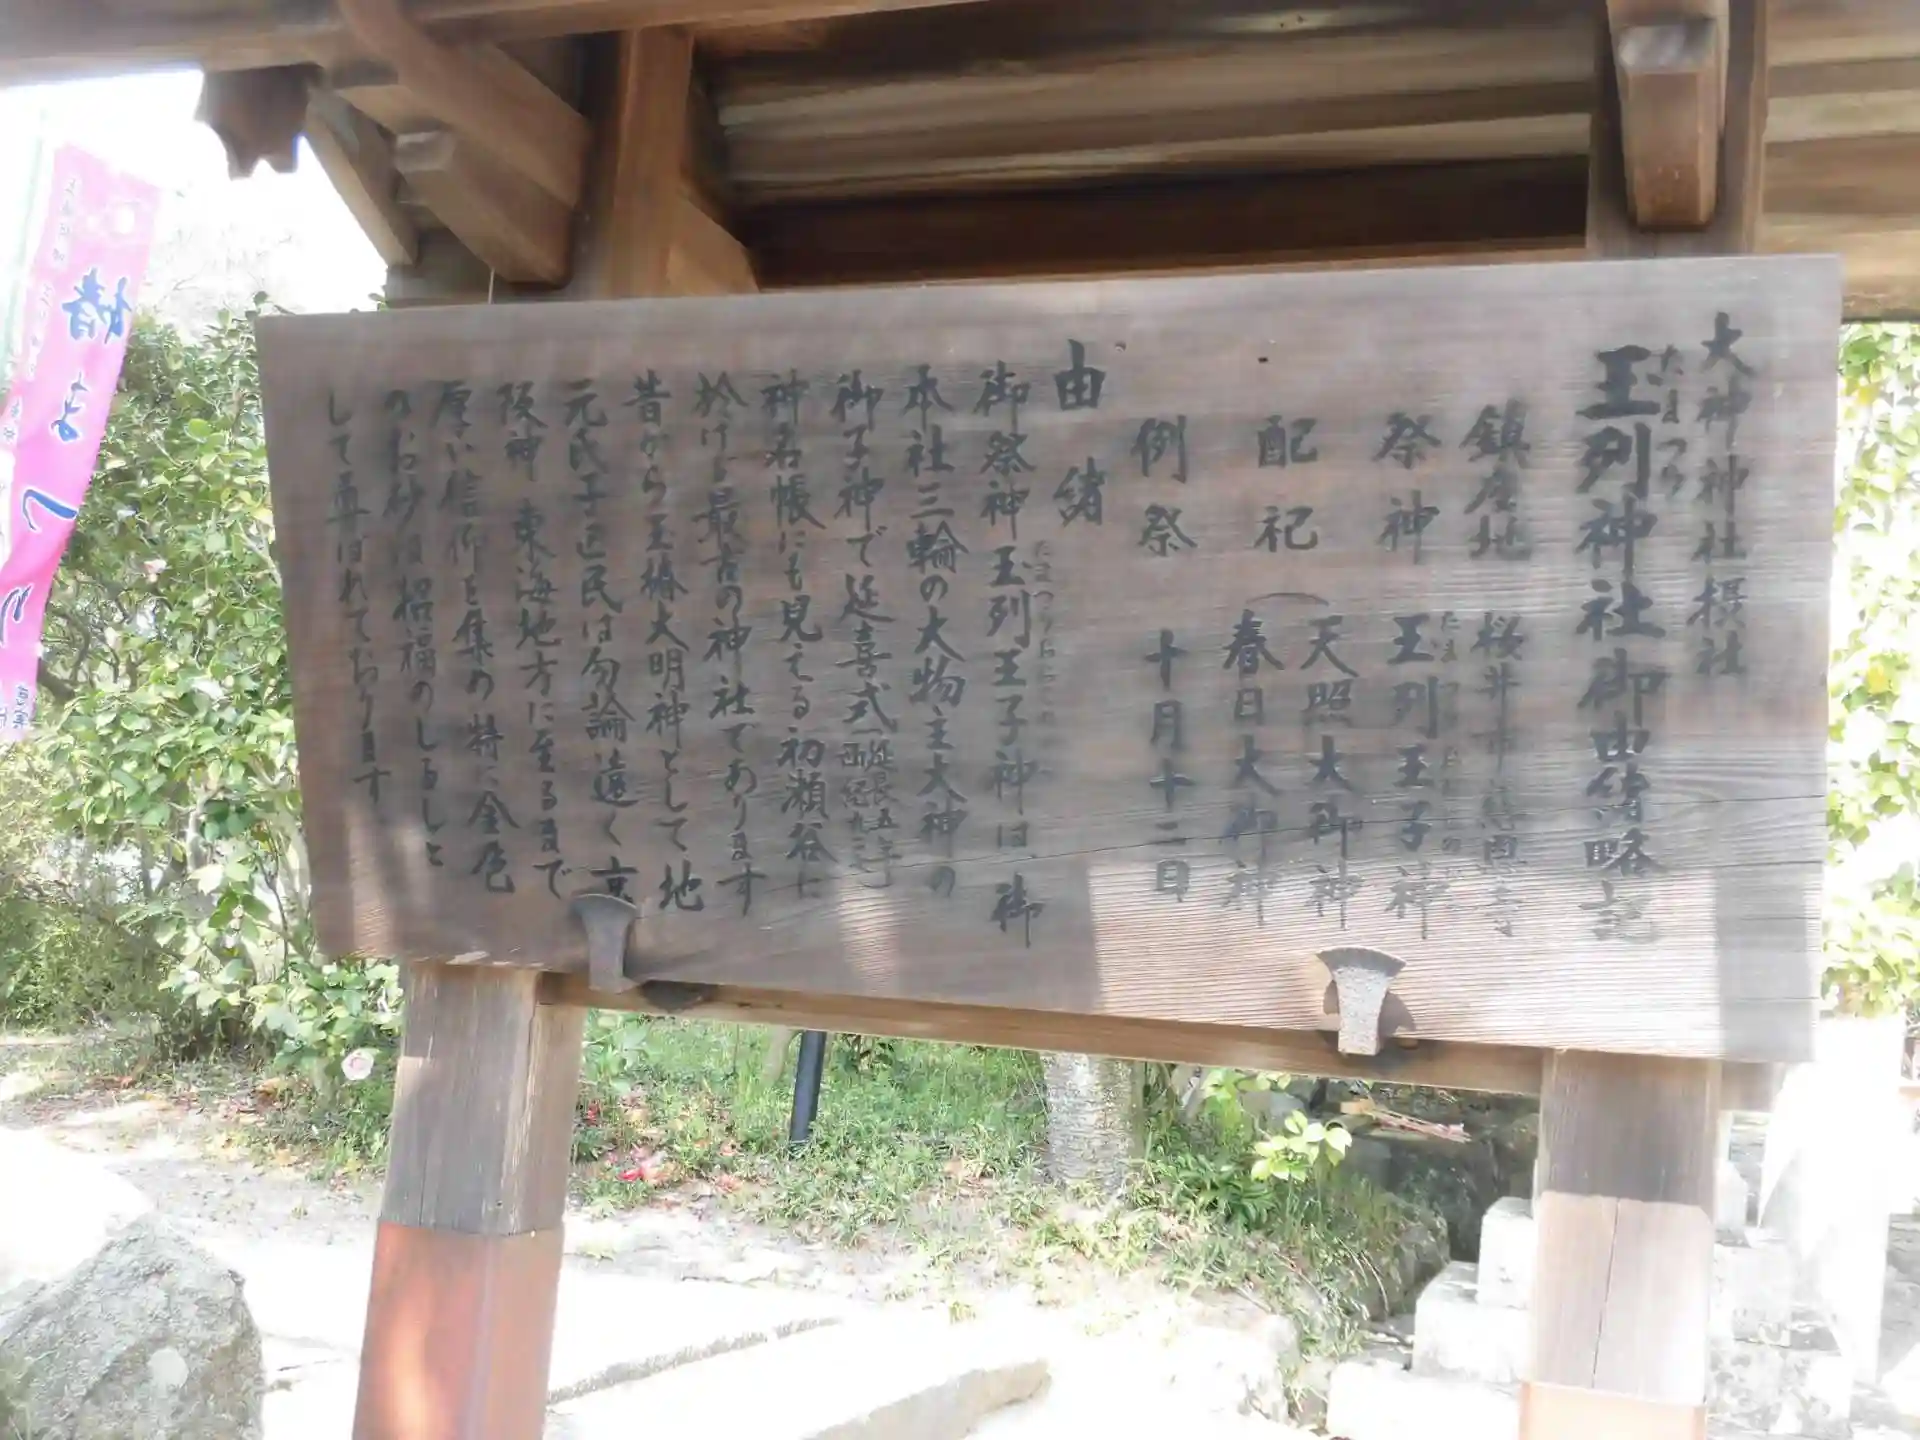 大神神社摂社
玉列神社御由緒略記
たまつら
鎮座地 桜井市慈恩寺
祭神 玉列王子神
配祀 天照大御神
春日大御神
例祭 十月十二日
由緒
御祭神玉列王子神は、御
本社三輪の大物主大神の
御子神で延喜式(延長五年
西紀九二七)
神名帳にも見える初瀬谷に
於ける最古の神社であります
昔から玉椿大明神として地
元氏子区民は勿論遠く京
阪神 東海地方に至るまで
厚い信仰を集め特に金色
のお砂は招福のしるしと
して尊ばれております
椿まつり